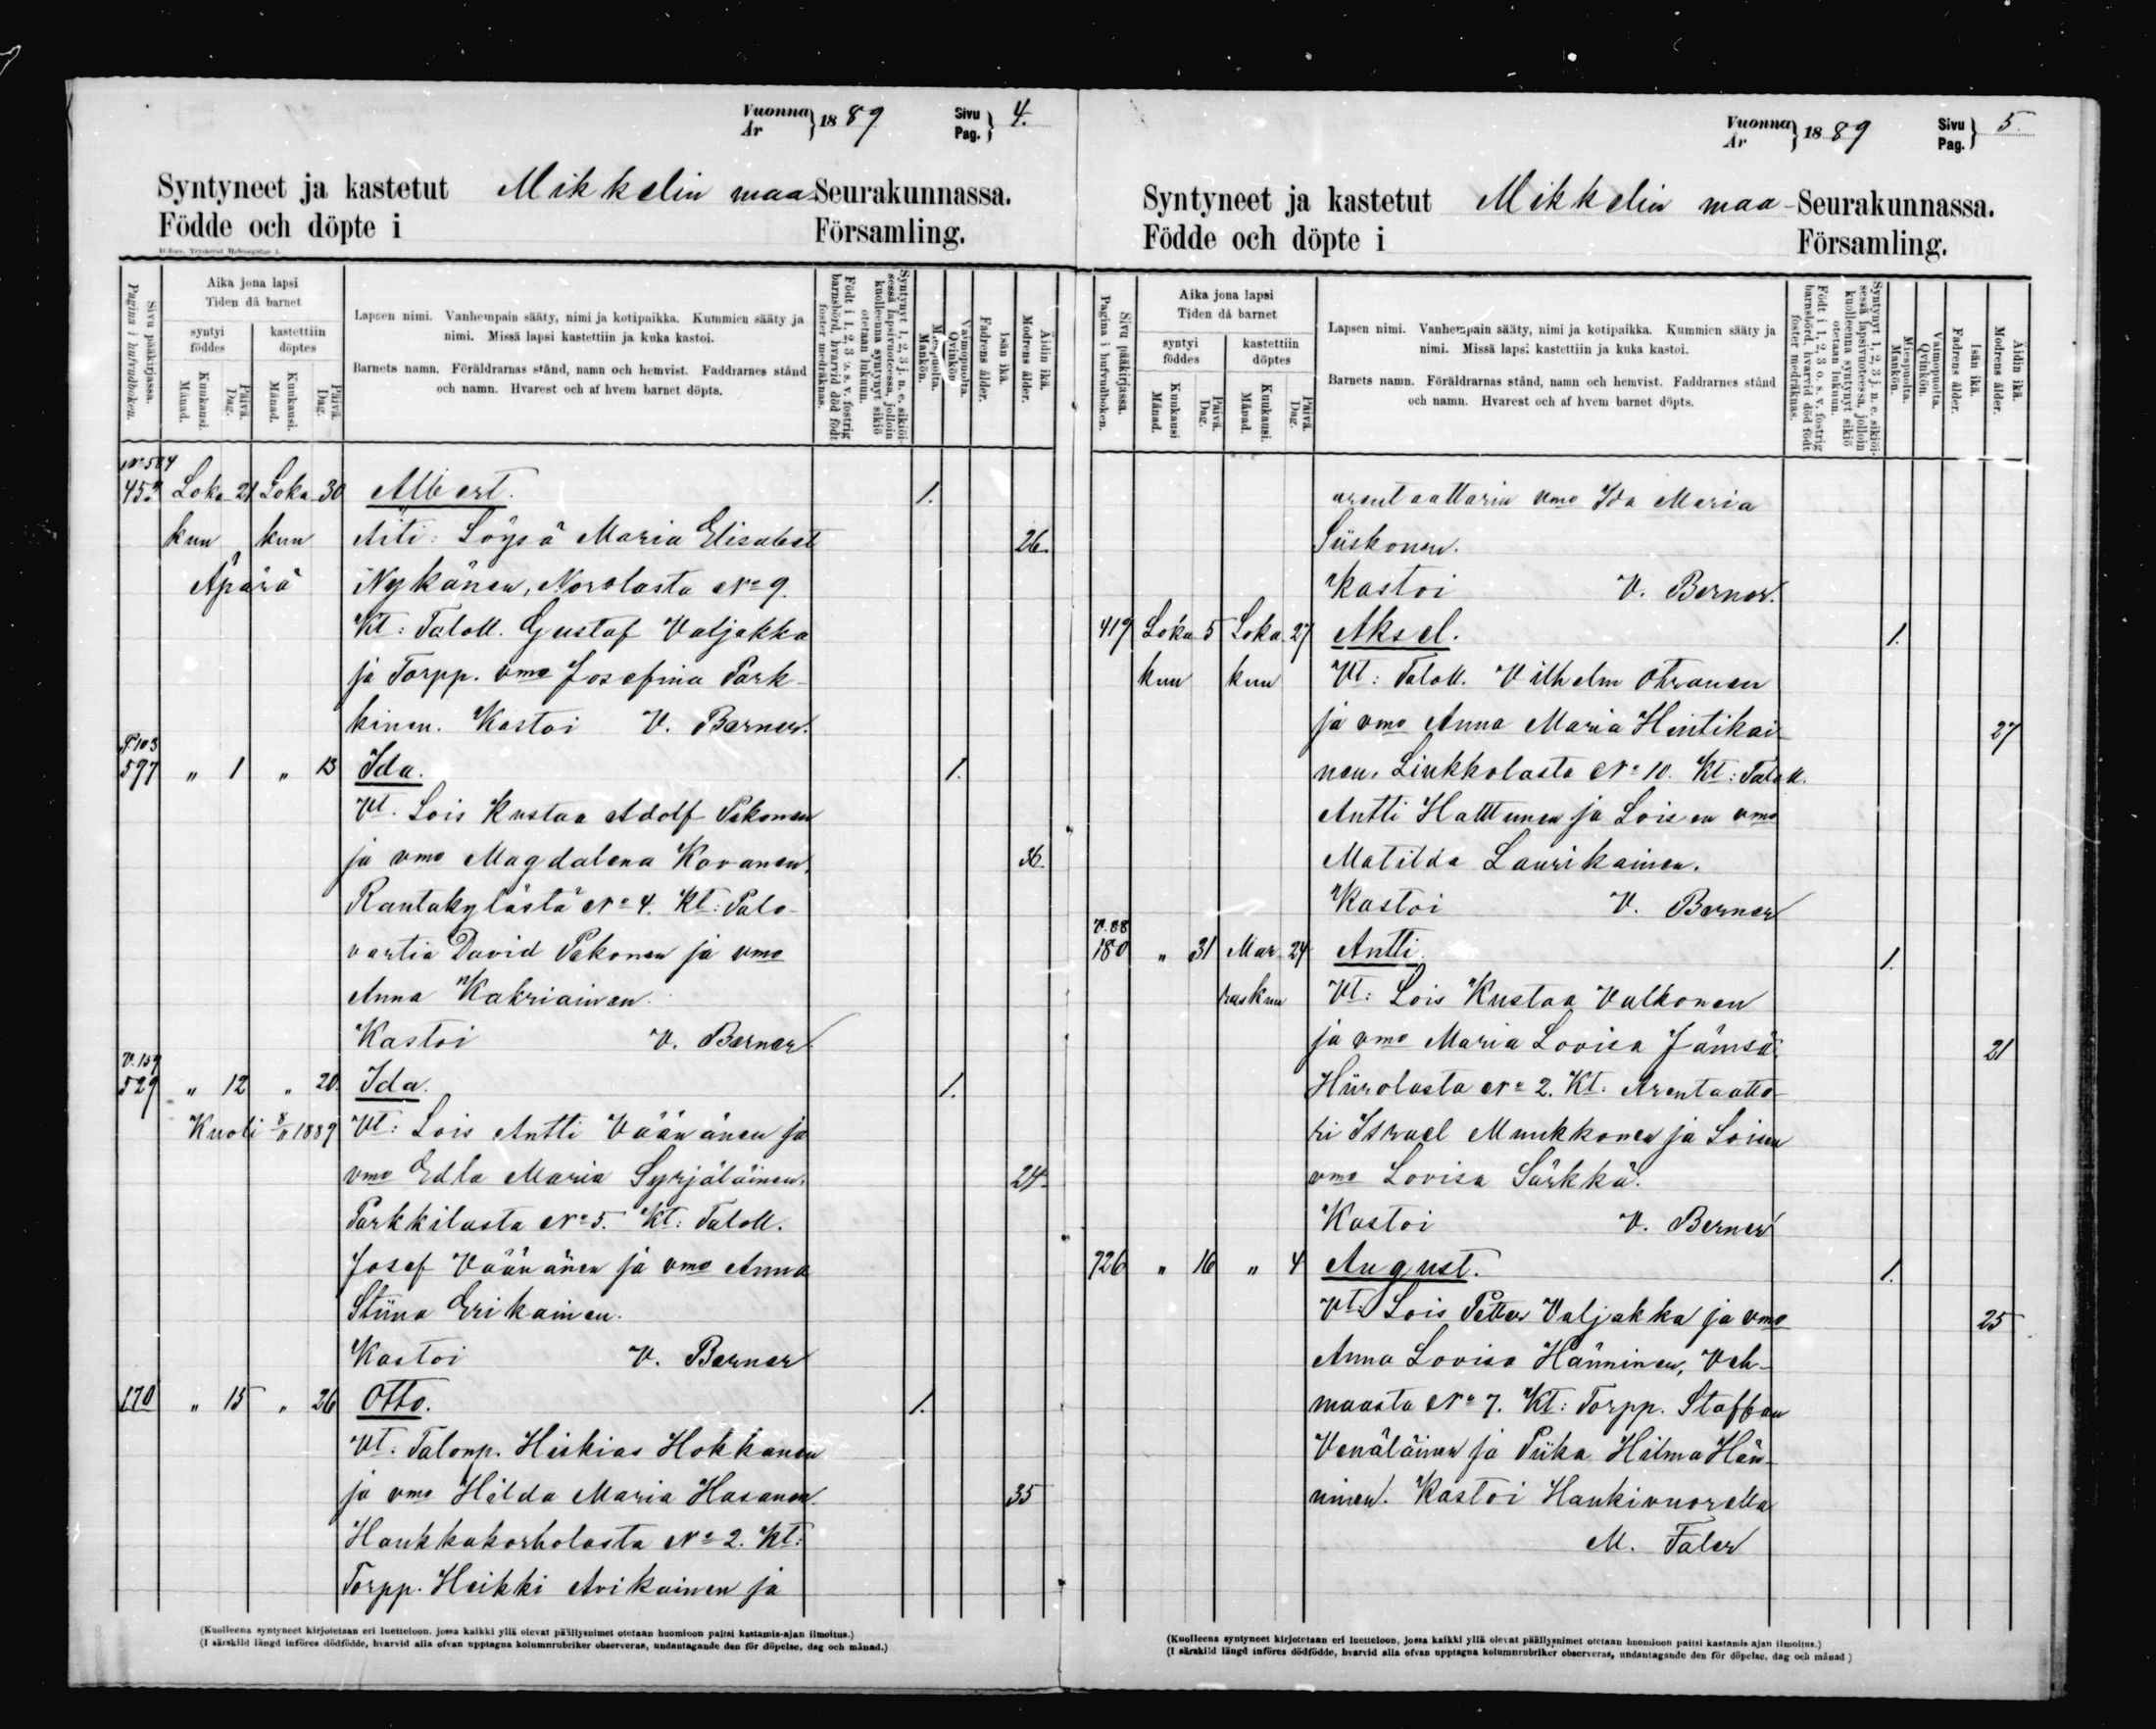 Vuonna
År } 1889
Sivu
Pag. } 4.
Syntyneet ja kastetut Mikkelin maa-Seurakunnassa.
Födde och döpte i Församling.
Sivu pääkirjassa.
Pagina i hufvudboken.
Aika jona lapsi
Tiden då barnet
syntyi
föddes
kastettiin
döptes
Kuukausi.
Månad.
Päivä.
Dag.
Kuukausi.
Månad.
Päivä.
Dag.
Lapsen nimi. Vanhempain sääty, nimi ja kotipaikka. Kummien sääty ja
nimi. Missä lapsi kastettiin ja kuka kastoi.
Barnets namn. Föräldrarnas stånd, namn och hemvist. Faddrarnes stånd
och namn. Hvarest och af hvem barnet döpts.
Syntynyt 1, 2, 3 j. n. e. sikiöi-
sessä lapsivuoteessa, jolloin
kuolleenna syntynyt sikiö
otetaan lukuun.
Född i 1, 2, 3 o. s. v. fostrig
barnsbörd, hvarvid död född
foster medräknas.
Miespuolta.
Mankön.
Vaimopuolta.
Qvinkön.
Isän ikä.
Fadrens ålder.
Äidin ikä.
Modrens ålder.
No 584
453 Loka 21 Loka 30 Albert. 1.
kun kun Äiti: Löysä Maria Elisabet 26.
Äpärä Nykänen, Norolasta No 9.
Kt: Taloll. Gustaf Valjakka
ja Torpp. vmo Josefina Park-
kinen. Kastoi V. Berner.
P. 103
597 " 1 " 13 Ida. 1.
Vt. Lois Kustaa Adolf Pekonen
ja vmo Magdalena Kovanen, 36.
Rantakylästä No 4. Kt: Palo-
vartia David Pekonen ja vmo
Anna Kakriainen.
Kastoi V. Berner.
V. 159
529 " 12 " 20. Ida. 1.
Kuoli 8/11 1889 Vt: Lois Antti Väänänen ja
vmo Edla Maria Syrjäläinen, 24.
Parkkilasta No 5. Kt: Taloll.
Josef Väänänen ja vmo Anna
Stiina Erikainen.
Kastoi V. Berner
170 " 15 " 26 Otto. 1.
Vt: Talonp. Hiskias Hokkanen
ja vmo Hilda Maria Hasanen. 35
Haukkakorholasta No 2. Kt:
Torpp. Heikki Avikainen ja
(Kuolleena syntyneet kirjotetaan eri luetteloon, jossa kaikki yllä olevat päällysnimet otetaan huomioon paitsi kastamis-ajan ilmoitus.)
(I särskild längd införes dödfödde, hvarvid alla ofvan upptagna kolumnrubriker observeras, undantagande den för döpelse, dag och månad.)
Vuonna
År } 1889
Sivu
Pag. } 5.
Syntyneet ja kastetut Mikkelin maa-Seurakunnassa.
Födde och döpte i Församling.
Sivu pääkirjassa.
Pagina i hufvudboken.
Aika jona lapsi
Tiden då barnet
syntyi
föddes
kastettiin
döptes
Kuukausi
Månad.
Päivä.
Dag.
Kuukausi.
Månad.
Päivä.
Dag.
Lapsen nimi. Vanhempain sääty, nimi ja kotipaikka. Kummien sääty ja
nimi. Missä lapsi kastettiin ja kuka kastoi.
Barnets namn. Föräldrarnas stånd, namn och hemvist. Faddrarnes stånd
och namn. Hvarest och af hvem barnet döpts.
Syntynyt 1, 2, 3 j. n. e. sikiöi-
sessä lapsivuoteessa, jolloin
kuolleenna syntynyt sikiö
otetaan lukuun.
Född i 1, 2, 3 o. s. v. fostrig
barnsbörd, hvarvid död född
foster medräknas.
Miespuolta.
Mankön.
Vaimopuolta.
Qvinkön.
Isän ikä.
Fadrens ålder.
Äidin ikä.
Modrens ålder.
arentaattarin vmo Ida Maria
Siiskonen.
Kastoi V. Berner.
419 Loka 5 Loka 27 Aksel. 1.
kun kun Vt: Taloll. Vilhelm Ohranen
ja vmo Anna Maria Hintikai- 27
nen, Liukkolasta No 10. Kt: Taloll.
Antti Hatttunen ja Loisen vmo
Matilda Laurikainen.
Kastoi V. Berner
V. 88
180 " 31 Mar 24 Antti. 1.
raskun Vt: Lois Kustaa Valkonen
ja vmo Maria Lovisa Jämsä. 21
Hiirolasta No 2. Kt: Arentaatto-
ri Israel Muukkonen ja Loisen
vmo Lovisa Särkkä.
Kastoi V. Berner
726 " 16 " 4 August. 1.
Vt: Lois Petter Valjakka ja vmo 25
Anna Lovisa Hänninen, Veh-
maasta No 7. Kt: Torpp. Staffan
Venäläinen ja Piika Hilma Hän-
ninen. Kastoi Haukivuorella
M. Faler
(Kuolleena syntyneet kirjotetaan eri luetteloon, jossa kaikki yllä olevat päällysnimet otetaan huomioon paitsi kastamis ajan ilmoitus.)
(I särskild längd införes dödfödde, hvarvid alla ofvan upptagna kolumnrubriker observeras, undantagande den för döpelse, dag och månad)